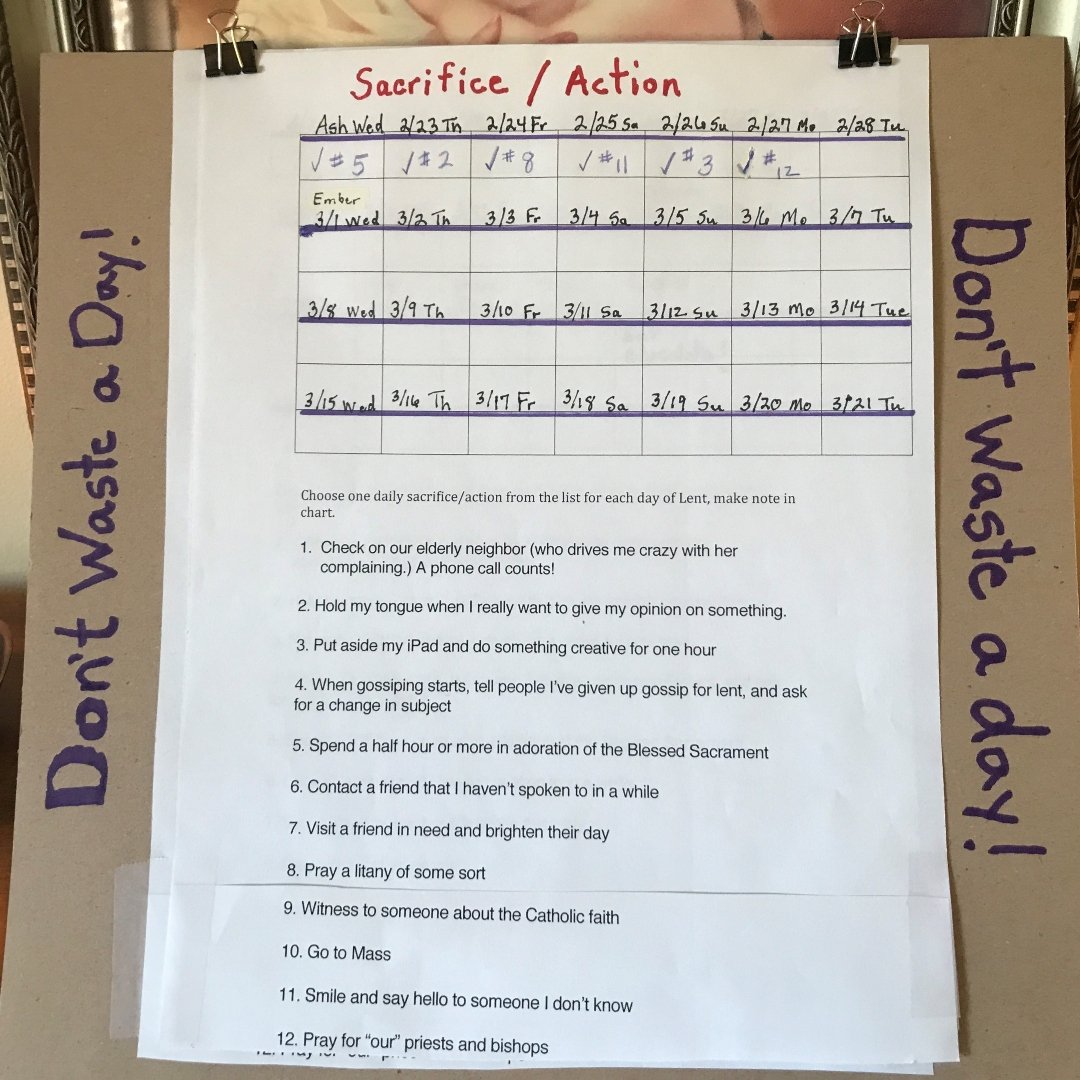 Sacrifice / Action
Ash Wed 2/23 Th 2/24 Fr 2/25 Sa 2/26 Su 2/27 Mo 2/28 Tu
✓ #5 ✓ #2 ✓ #8 ✓ #11 ✓ #3 ✓ #12
Ember
3/1 Wed 3/2 Th 3/3 Fr 3/4 Sa 3/5 Su 3/6 Mo 3/7 Tu
3/8 Wed 3/9 Th 3/10 Fr 3/11 Sa 3/12 Su 3/13 Mo 3/14 Tue
3/15 Wed 3/16 Th 3/17 Fr 3/18 Sa 3/19 Su 3/20 Mo 3/21 Tu
Choose one daily sacrifice/action from the list for each day of Lent, make note in
chart.
1. Check on our elderly neighbor (who drives me crazy with her
complaining.) A phone call counts!
2. Hold my tongue when I really want to give my opinion on something.
3. Put aside my iPad and do something creative for one hour
4. When gossiping starts, tell people I've given up gossip for lent, and ask
for a change in subject
5. Spend a half hour or more in adoration of the Blessed Sacrament
6. Contact a friend that I haven't spoken to in a while
7. Visit a friend in need and brighten their day
8. Pray a litany of some sort
9. Witness to someone about the Catholic faith
10. Go to Mass
11. Smile and say hello to someone I don't know
12. Pray for “our” priests and bishops
Don't Waste a Day!
Don't Waste a day!